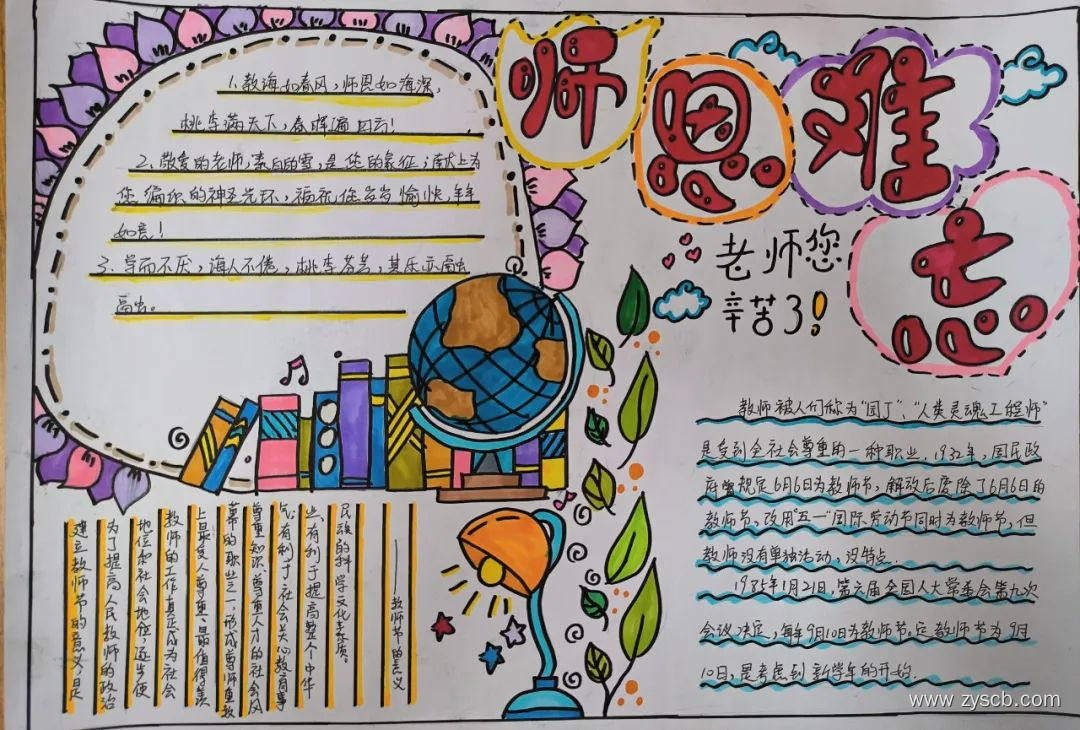 师恩难忘
老师您
辛苦了!
1.教海如春风,师恩如海深,
桃李满天下,春晖遍四方!
2、敬爱的老师,素白的雪,是您的象征;献上为
您编织的神圣光环,福祝您岁岁愉快,年年
如意!
3、学而不厌,诲人不倦,桃李芬芳,其乐亦融融
融融。
教师被人们称为"园丁"、"人类灵魂工程师"
是受到全社会尊重的一种职业.1932年,国民政
府曾规定6月6日为教师节,解放后废除了6月6日的
教师节、改用"五一"国际劳动节同时为教师节,但
教师没有单独活动,没特点.
1985年1月21日,第六届全国人大常委会第九次
会议决定,每年9月10日为教师节。定教师节为9月
10日,是考虑到新学年的开始.
建立教师节的意义,是
为了提高人民教师的政治
地位和社会地位,逐步使
教师的工作真正成为社会
上最受人尊重、最值得羡
慕的职业之一,形成尊师重教
尊重知识尊重人才的社会风
气,有利于社会关心教育事
业,有利于提高整个中华
民族的科学文化素质。
——教师节的意义
www.zyscb.com